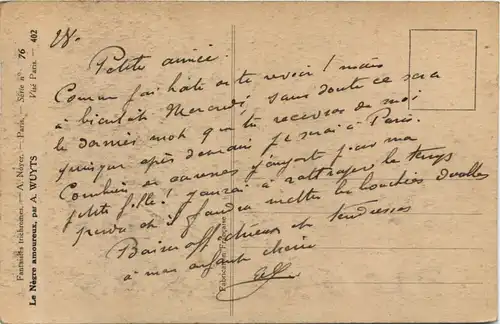 28.
Petite amie.
Comme j'ai hâte de te revoir ! mais
à bientôt. Mercredi, sans doute ce sera
le dernier mot que tu recevras de moi
puisque après demain je serai à Paris.
Combien de caresses j'apporte pour ma
petite fille ! j'aurai à rattraper le temps
perdu et il faudra mettre les bouchées doubles
Baisers affectueux et tendresses
à mon enfant chérie
Fantaisies trichromes. — A. Noyer. — Paris. — Série nº 76
Le Nègre amoureux, par A. WUYTS Visé Paris. — 402
Fabrication